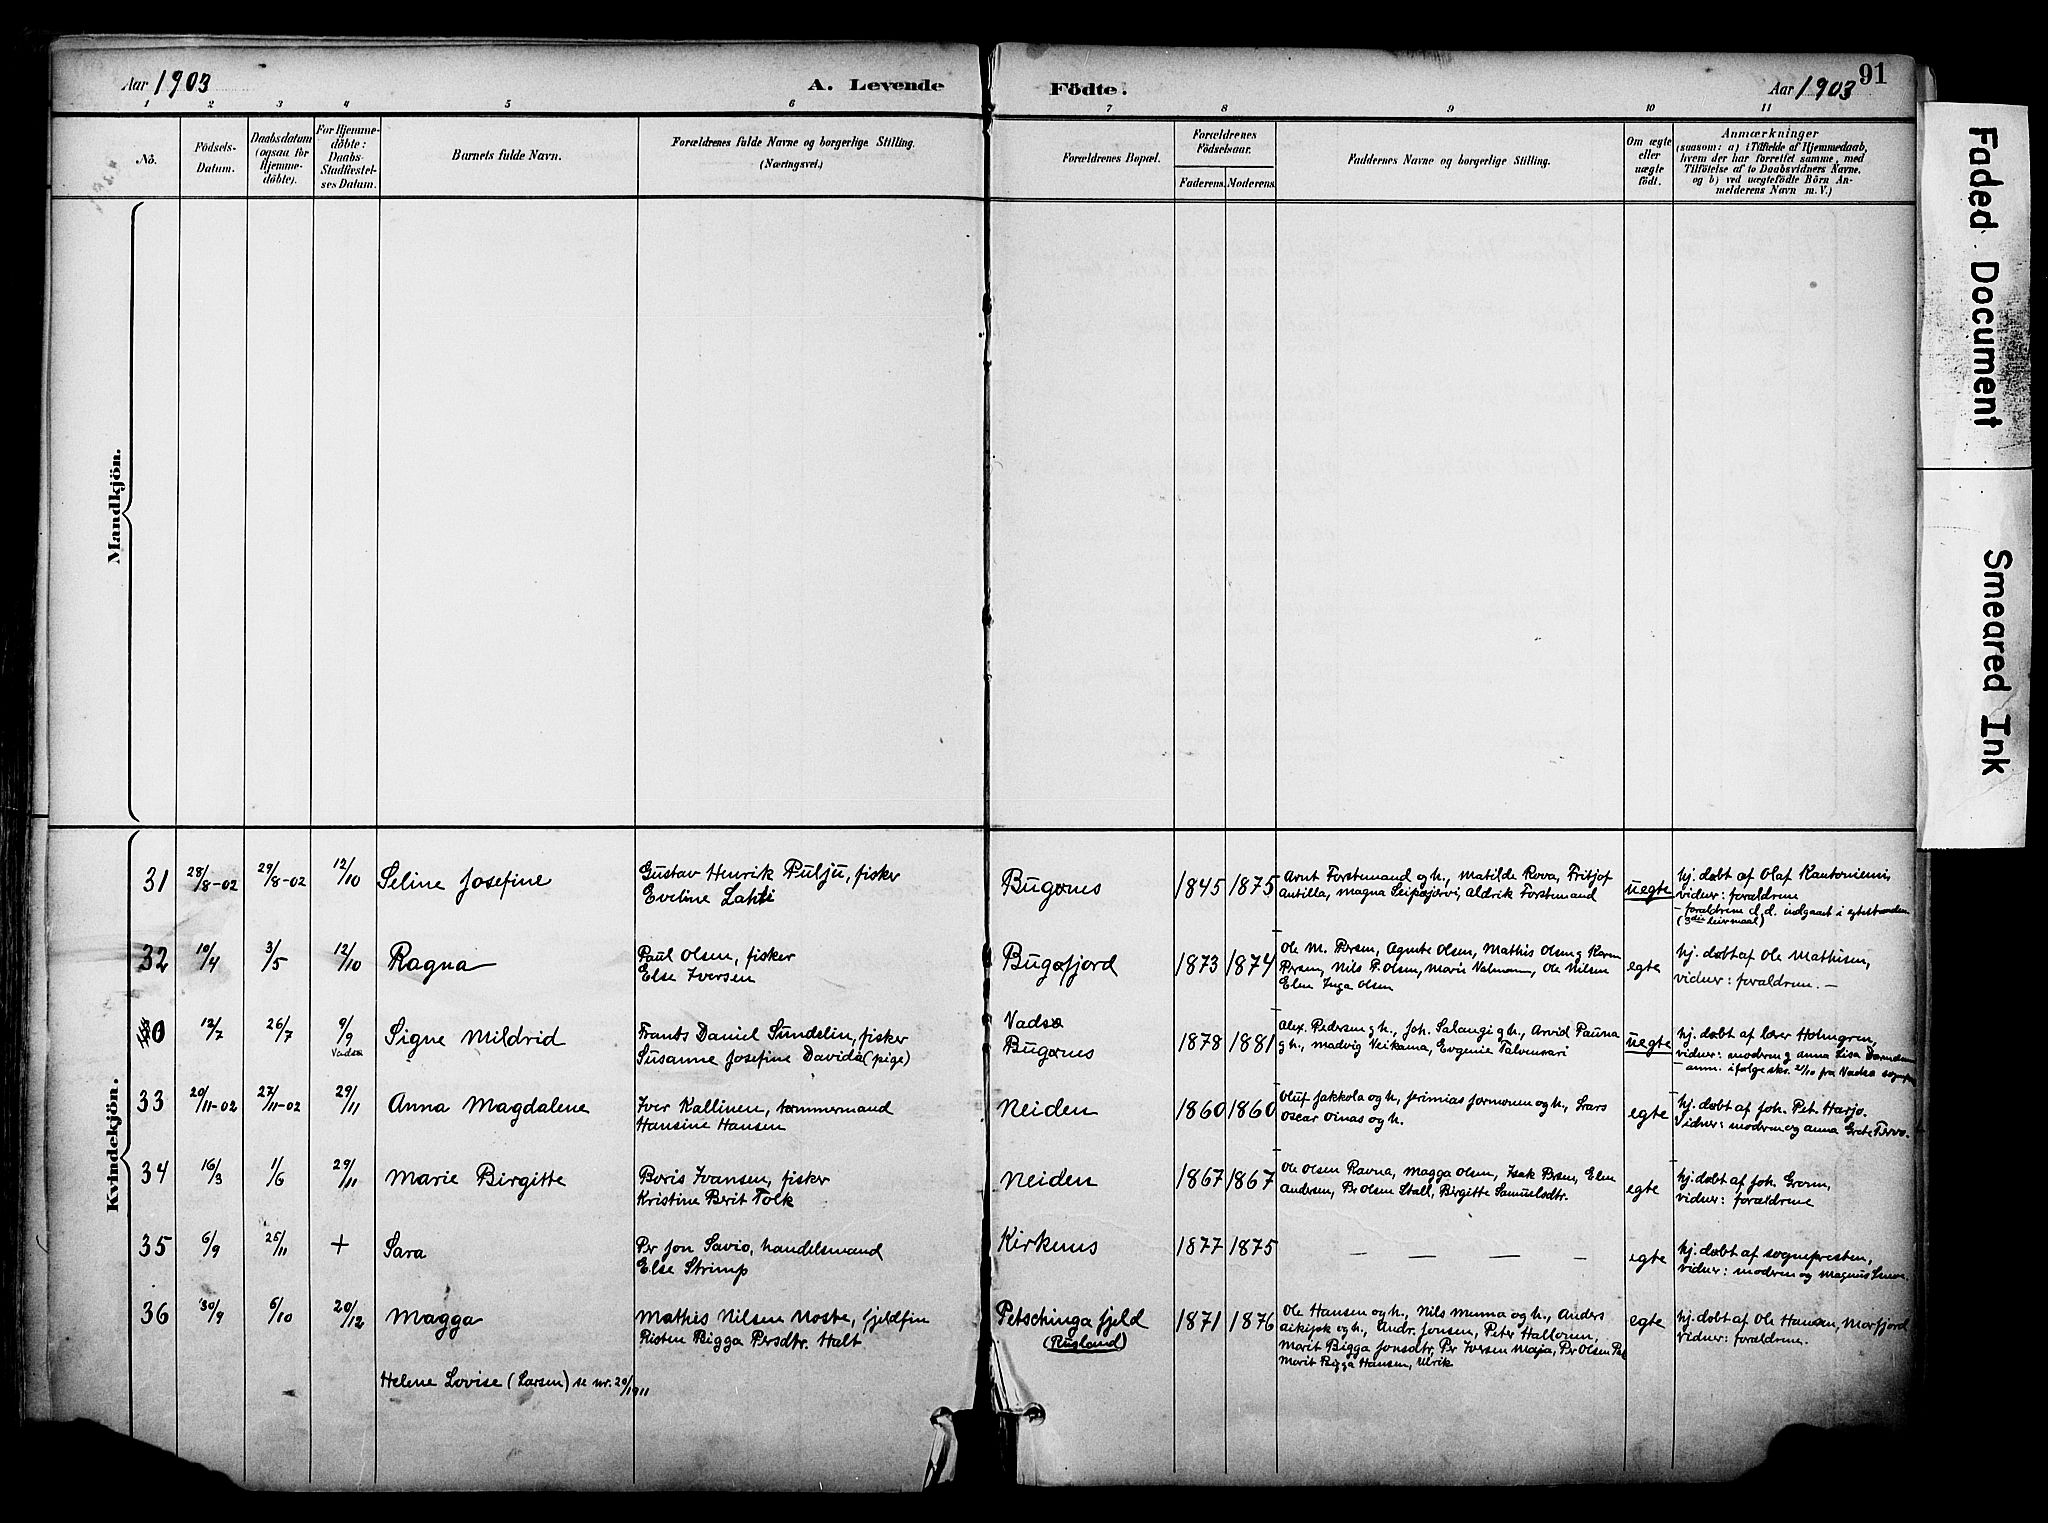 Aar 1903
A. Levende
Födte.
Aar 1903
91
1 2 3 4 5 6 7 8 9 10 11
No.
Födsels-
Datum.
Daabsdatum
(ogsaa for
Hjemme-
döbte).
For Hjemme-
döbte:
Daabs-
Stadfæstel-
ses Datum.
Barnets fulde Navn.
Forældrenes fulde Navne og borgerlige Stilling.
(Næringsvei.)
Forældrenes Bopæl.
Forældrenes
Födselsaar.
Faderens.
Moderens.
Faddernes Navne og borgerlige Stilling.
Om ægte
eller
uægte
födt.
Anmærkninger
(saasom: a) i Tilfælde af Hjemmedaab,
hvem der har forrettet samme, med
Tilföielse af to Daabsvidners Navne.
og b) ved uægtefödte Börn An-
melderens Navn m. V.)
Mandkjön.
Kvindekjön.
31 28/8-02 29/8-02 12/10 Seline Josefine
Gustav Henrik Pulju, fisker
Eveline Lahti
Bugønes 1845 1875
Arnt Forstmand og h., Matilde Rova, Fritjof
Antilla, Magna Leipæjærvi, Aldrik Forstmand
uegte
hj. døbt af Olaf Kantoniemi,
vidner: forældrene
- forældrene d.d. indgaaet i egtestanden
32 10/4 3/5 12/10 Ragna
Paul Olsen, fisker
Else Iversen
Bugøfjord 1873 1874
Ole M. Persen, Agnete Olsen, Mathis Olsen og Karen
Persen, Nils P. Olsen, Marie Nelmann, Ole Nilsen
Elen Inga Olsen
egte
hj. døbt af Ole Mathisen,
vidner: forældrene. -
0 12/7 26/7 9/9
Vadsø
Signe Mildrid
Frants Daniel Sundelin, fisker
Susanne Josefine Davida (pige)
Vadsø
Bugønes
1878 1881
Alex. Pedersen og h., Joh. Salangi og h., Arvid Pauna
og h., Madvig Neikama, Evgenie Talvensari
uegte
hj. døbt af lærer Holmgren,
vidner: moderen og Anna Lisa
- anm. ifølge skr. 2/10 fra Vadsø sognepr.
33 20/11-02 27/11-02 29/11 Anna Magdalene
Iver Kallinen, tømmermand
Hansine Hansen
Neiden 1860 1860
Oluf Jakkola og h., Jerimias Jormonen og h., Lars
Oscar Oinas og h.
egte
hj. døbt af Joh. Pet. Harjo.
Vidner: moderen og Anna Grete Tervo.
34 16/3 1/6 29/11 Marie Birgitte
Boris Ivansen, fisker
Kristine Berit Tolk
Neiden 1867 1867
Ole Olsen Ravna, Magga Olsen, Isak Persen, Elen
Andersen, Per Olsen Stall, Birgitte Samuelsdtr.
egte
hj. døbt af Joh. Grønn,
vidner: forældrene
35 6/9 25/11 + Sara
Per Jon Savio, handelsmand
Else Strimp
Kirkenes 1877 1875
— — — —
egte
hj. døbt af sognepresten,
vidner: moderen og Magnus
36 30/9 6/10 20/12 Magga
Mathis Nilsen Noste, fjeldfin
Risten Bigga Persdtr. Halt
Petschinga fjeld
(Rusland)
1871 1876
Ole Hansen og h., Nils Menna og h., Anders
Aikipik og h., Andr. Jonsen, Peter Hallonen,
Marit Bigga Jonsdtr, Per Iversen Maja, Per Olsen
Marit Bigga Hansen, Ulrik
egte
hj. døbt af Ole Hansen, Morfjord
vidner: forældrene.
Helene Lovise (Larsen) se nr. 20/1911
Faded Document
Smeared Ink